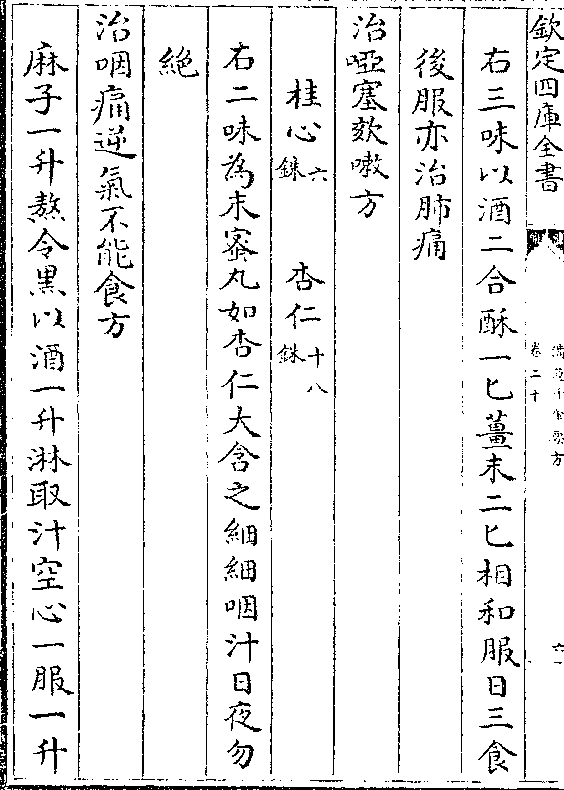 欽定四庫全書
卷二十
右三味以酒二合酥一匕薑末二匕相和服日三食
後服亦治肺痛
治啞塞欬嗽方
桂心六銖 杏仁十八銖
右二味為末蜜丸如杏仁大含之細細咽汁日夜勿
絶
治咽痛逆氣不能食方
麻子一升熬令黒以酒一升淋取汁空心一服一升